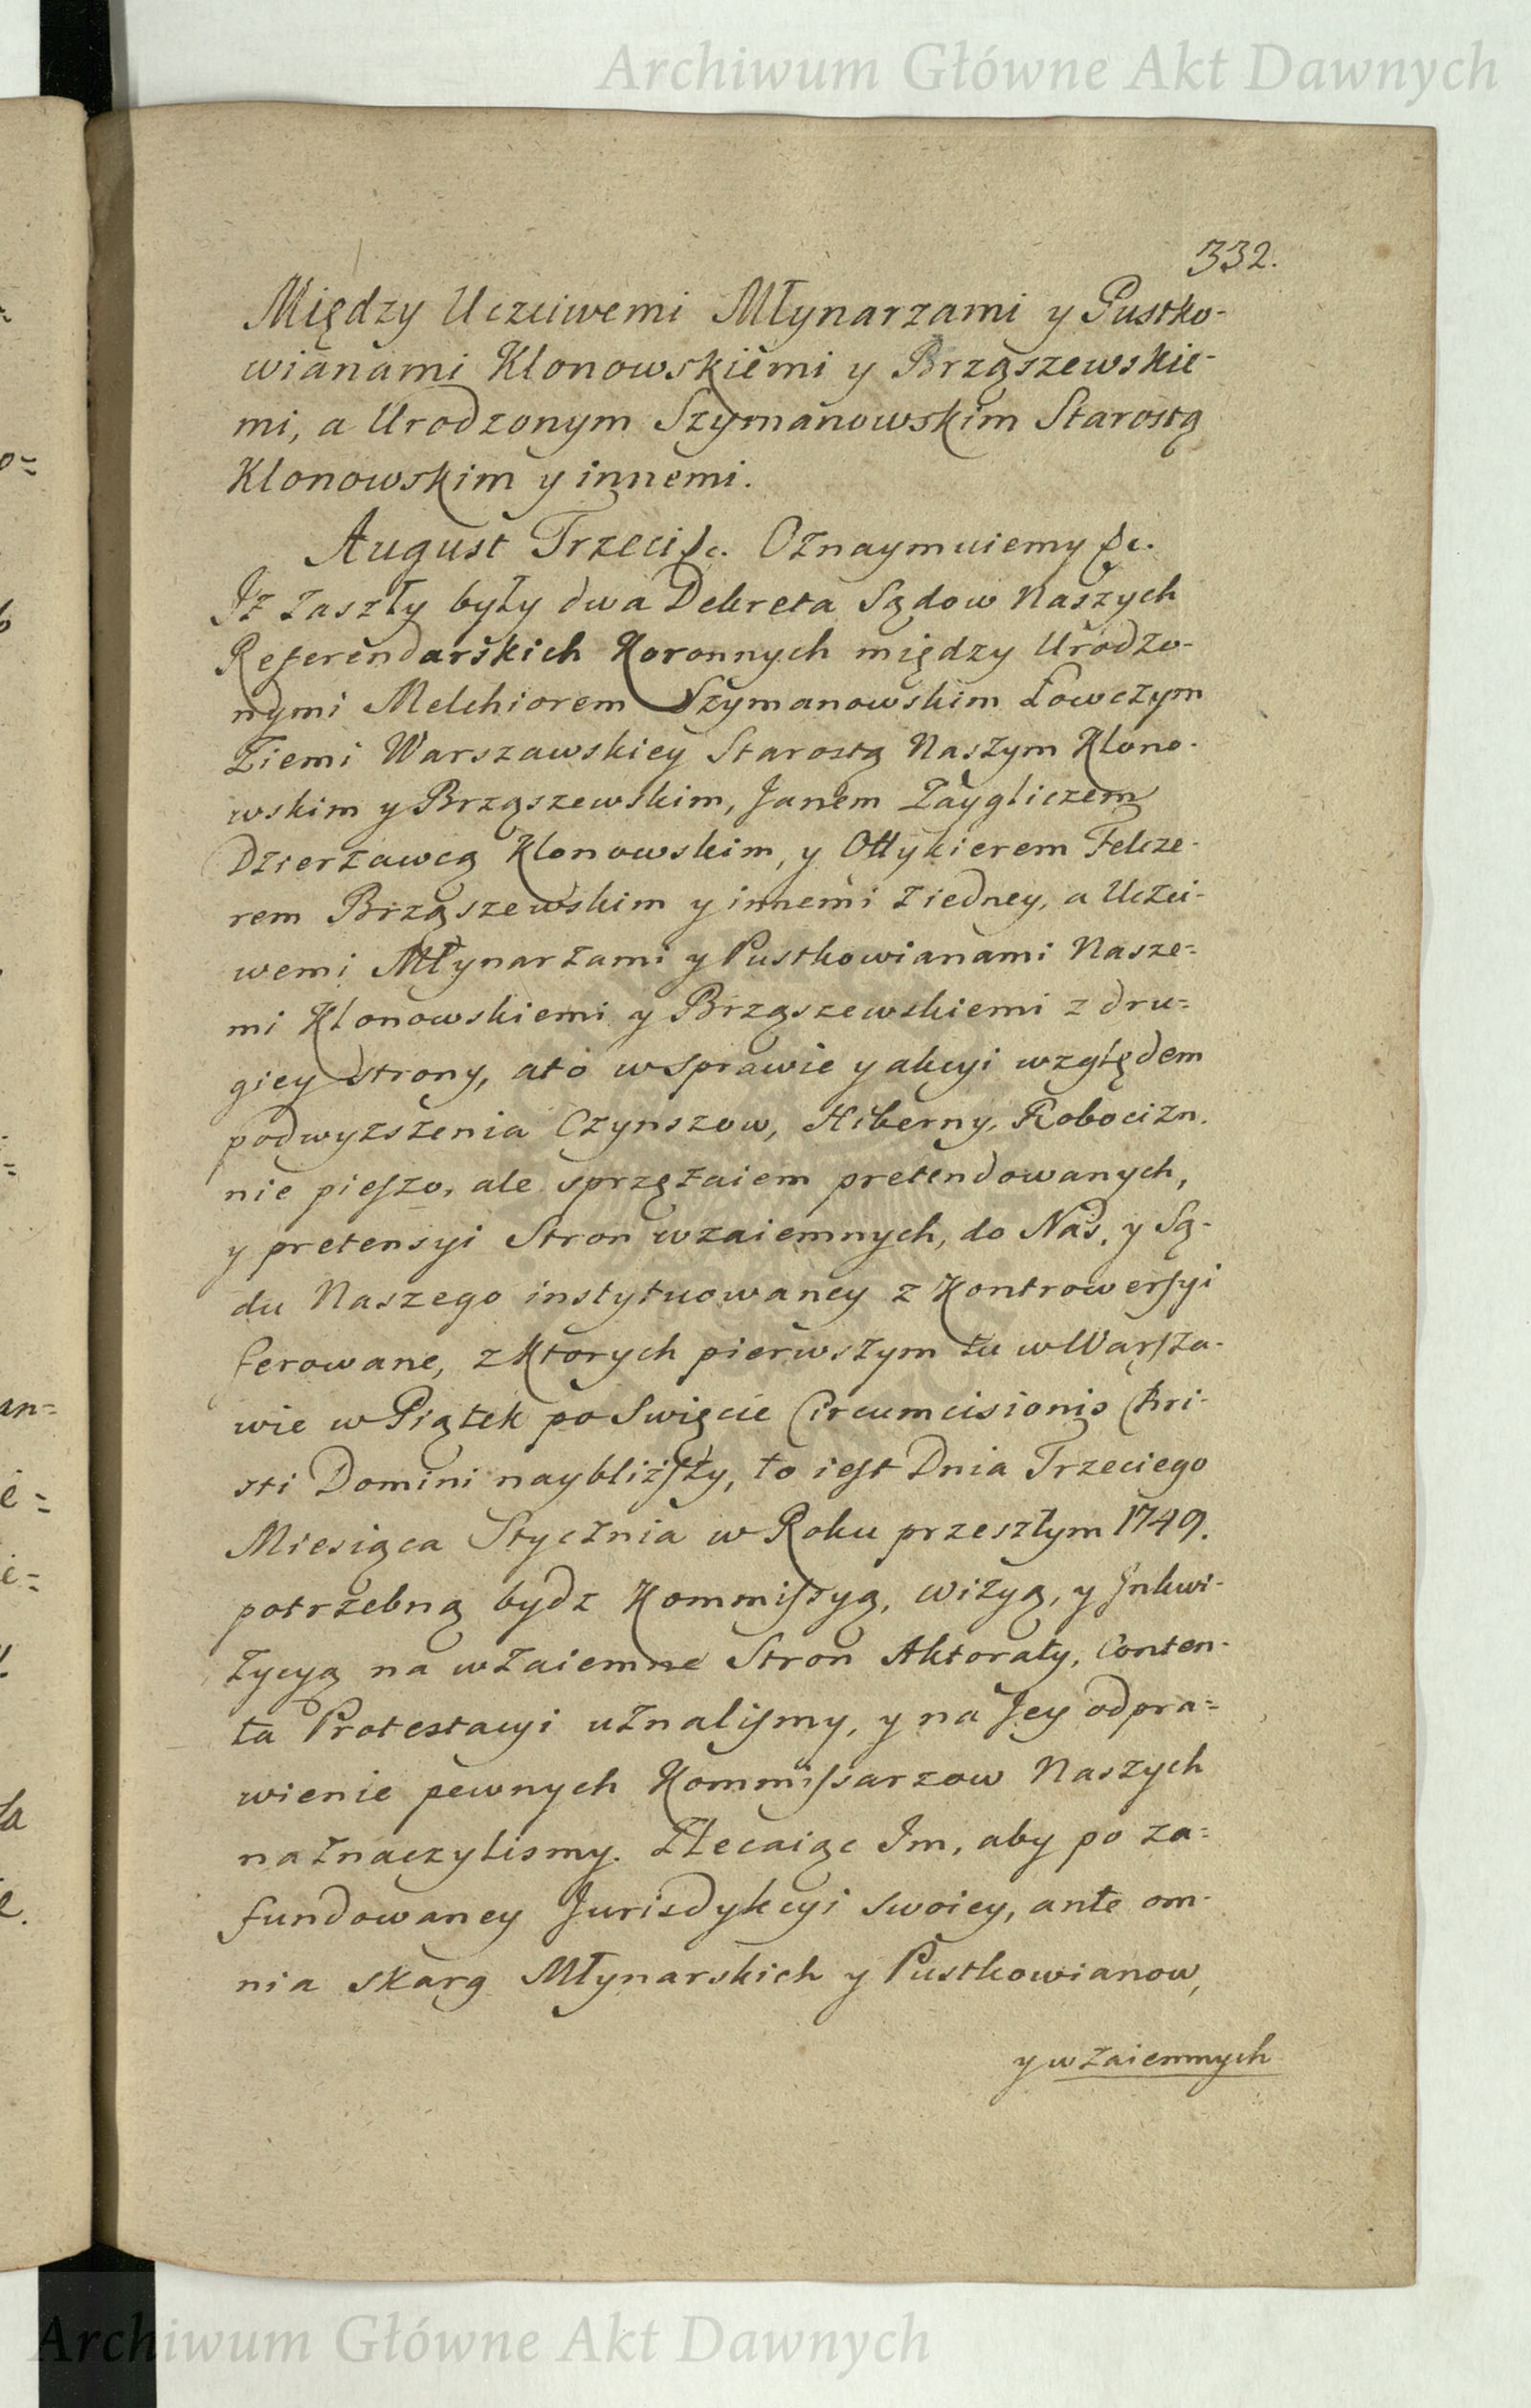 Archiwum Główne Akt Dawnych
332.
Między Uczciwemi Młynarzami y Pustko-
wianami Klonowskiemi y Brząszewskie-
mi, a Urodzonym Szymanowskim Starostą
Klonowskim y innemi.
August Trzeci &c. Oznaymuiemy &c.
Iż zaszły były dwa Dekreta Sądow Naszych
Referendarskich Koronnych między Urodzo-
nymi Melchiorem Szymanowskim Łowczym
Ziemi Warszawskiey Starostą Naszym Klono-
wskim y Brząszewskim, Janem Zaygliczem
Dzierzawcą Klonowskim, y Ottykierem Felcze-
rem Brząszewskim y innemi z iedney, a Uczci-
wemi Młynarzami y Pustkowianami Nasze=
mi Klonowskiemi y Brząszewskiemi z dru=
giey strony, a to w sprawie y akcyi względem
podwyzszenia Czynszow, Hiberny, Robocizn.
nie pieszo, ale sprzężaiem pretendowanych,
y pretensyi Stron wzaiemnych, do Nas, y Są-
du Naszego instytuowaney z Kontrowersyi
ferowane, z ktorych pierwszym tu w Warsza-
wie w Piątek po Swięcie Circumcisionis Chri-
sti Domini nayblizszy, to iest Dnia Trzeciego
Miesiąca Stycznia w Roku przeszłym 1749.
potrzebną bydz Kommissyą, wizyą, y Inkwi-
zycyą na wzaiemne Stron Aktoraty, Conten-
ta Protestacyi uznalismy, y na Jey odpra=
wienie pewnych Kommissarzow Naszych
naznaczylismy. Zlecaiąc Im, aby po za=
fundowaney Jurisdykcyi swoiey, ante om-
nia skarg Młynarskich y Pustkowianow,
y wzaiemnych
Archiwum Główne Akt Dawnych